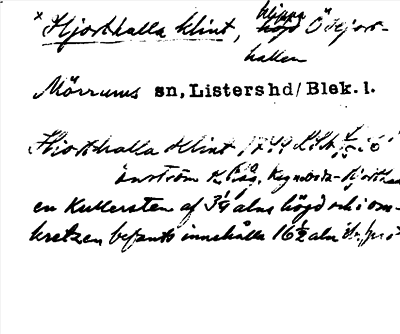 x Hjorthalla klint, klippa Ö Hjort-
hallen
Mörrums sn, Listers hd/ Blek. l.
Hjorthalla Klint 1744
en Kullersten af 3¼ alns högd och i om-
kretzen befants innehålla 16½ aln